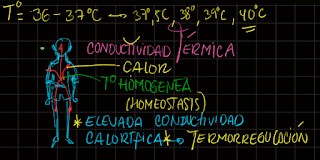 Tº = 36 - 37ºC → 37,5C, 38º, 39ºC, 40ºC
CONDUCTIVIDAD TÉRMICA
CALOR
Tº HOMOGENEA
(HOMEOSTASIS)
* ELEVADA CONDUCTIVIDAD
CALORÍFICA * → TERMORREGULACIÓN